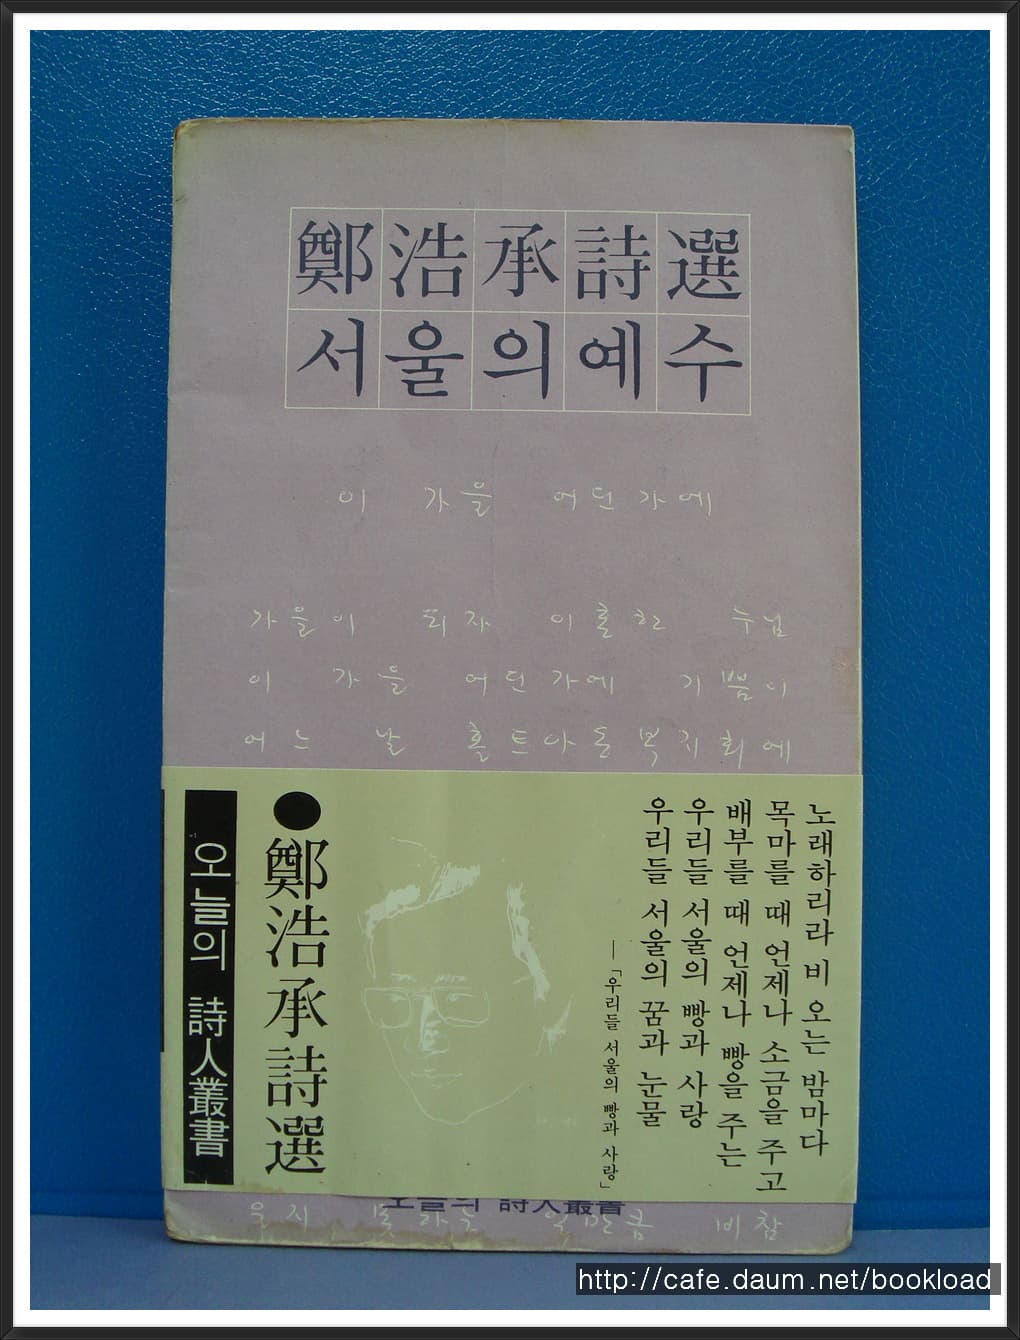 鄭浩承詩選
서울의예수
이 가을 어딘가에
가을이 되자 이혼한 누님
이 가을 어딘가에 기쁨이
어느 날 홀트아동복지회에
노래하리라 비 오는 밤마다
목마를 때 언제나 소금을 주고
배부를 때 언제나 빵을 주는
우리들 서울의 빵과 사랑
우리들 서울의 꿈과 눈물
―「우리들 서울의 빵과 사랑」
●鄭浩承詩選
오늘의 詩人叢書
오늘의 詩人叢書
비참
http://cafe.daum.net/bookload